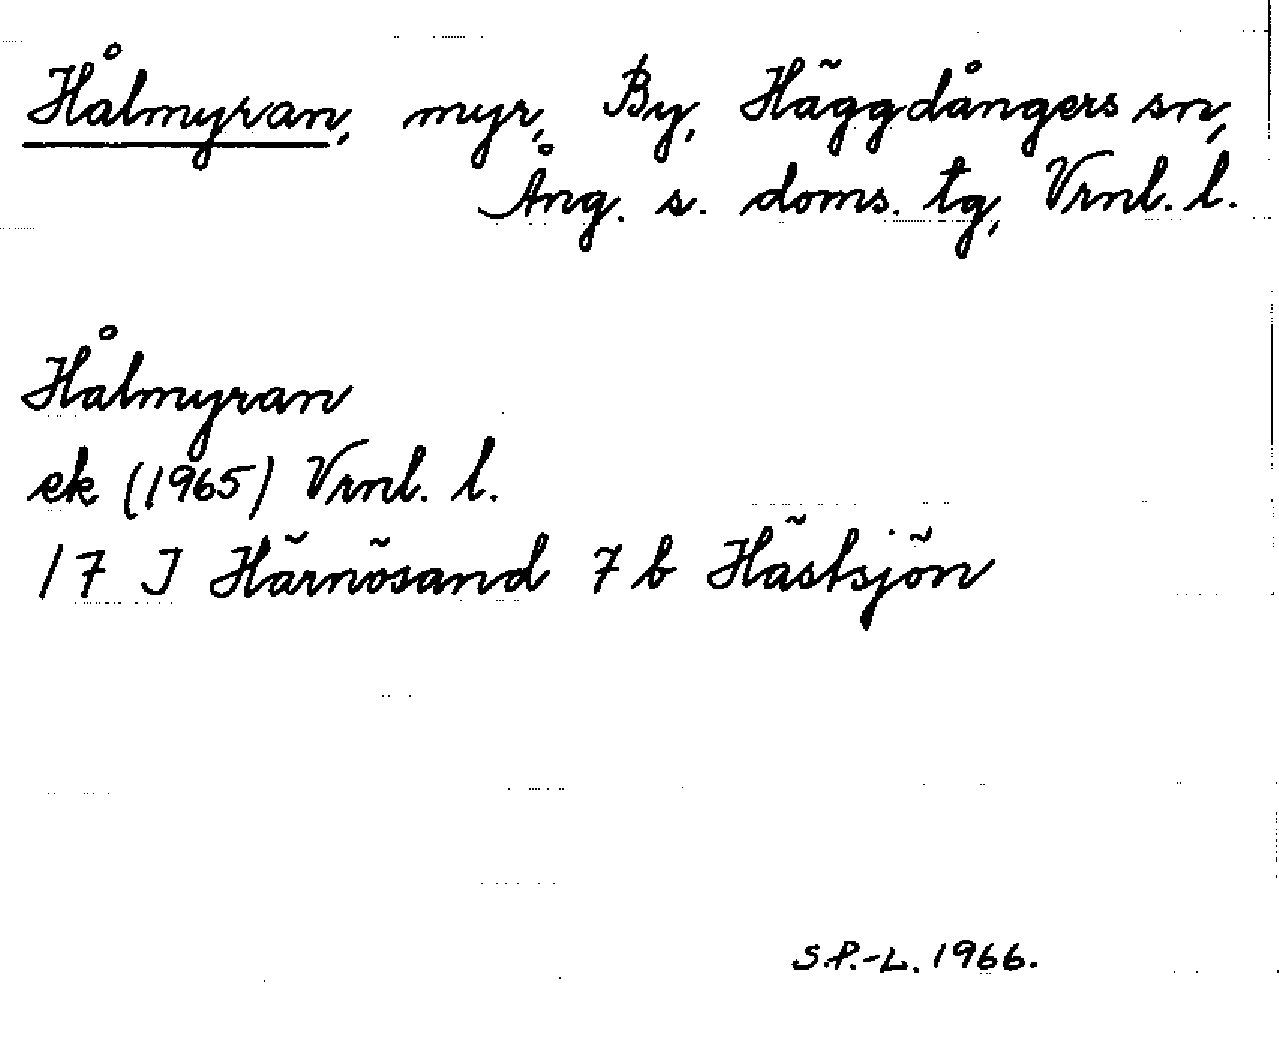 Hålmyran, myr, By, Häggdångers sn,
Ång. s. doms. tg, Vrnl. l.
Hålmyran
ek (1965) Vrnl. l.
17 J Härnösand 7 b Hästsjön
S.P.-L. 1966.